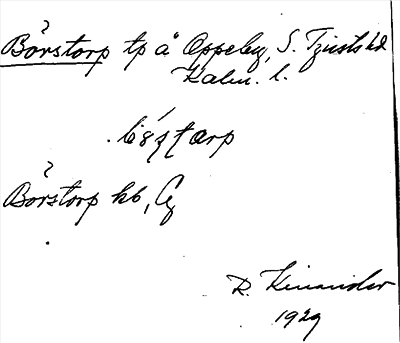 Börstorp tp å Oppeby, S. Tjusts hd
Kalm. l.
Börstorp hb, Cg
R. Kinander
1929